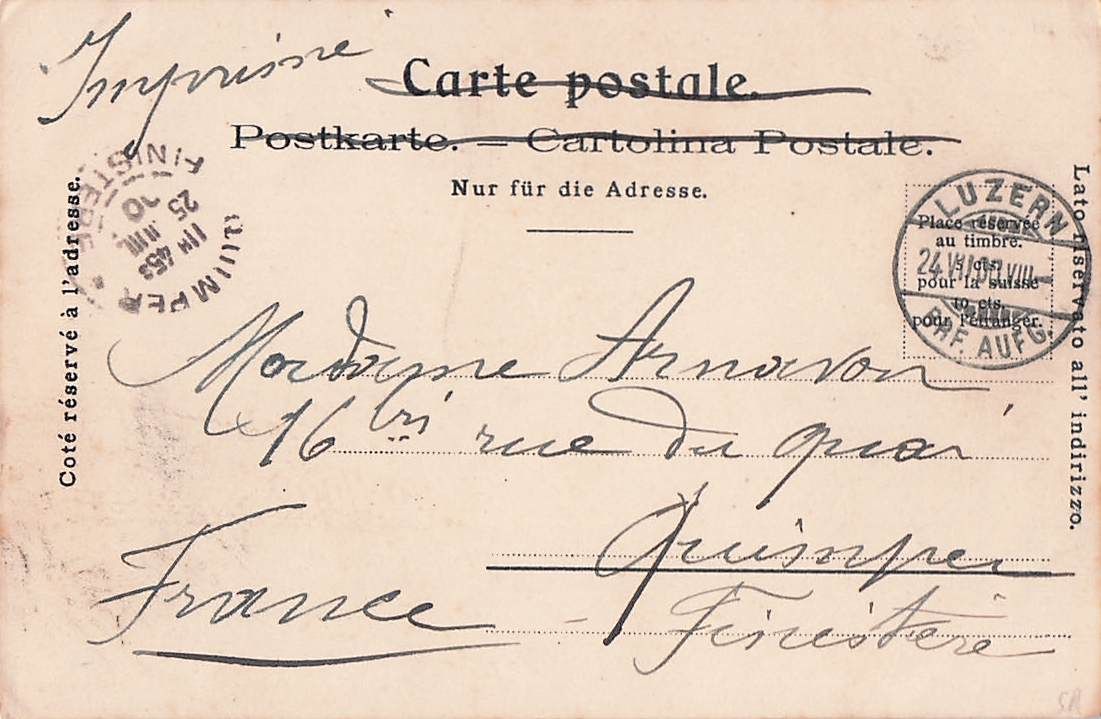 Imprimé
Carte postale.
Postkarte. — Cartolina Postale.
Nur für die Adresse.
Coté réservé à l'adresse.
Lato riservato all' indirizzo.
QUIMPER
FINISTERE
1H 45S
25
JUIL
00
LUZERN
24.VII.00.VIII
BHF. AUFG.
Place réservée
au timbre.
5 cts.
pour la suisse
10 cts.
pour l'étranger.
Madame Arnavon
16 bis rue du quai
Quimper
France
Finistère